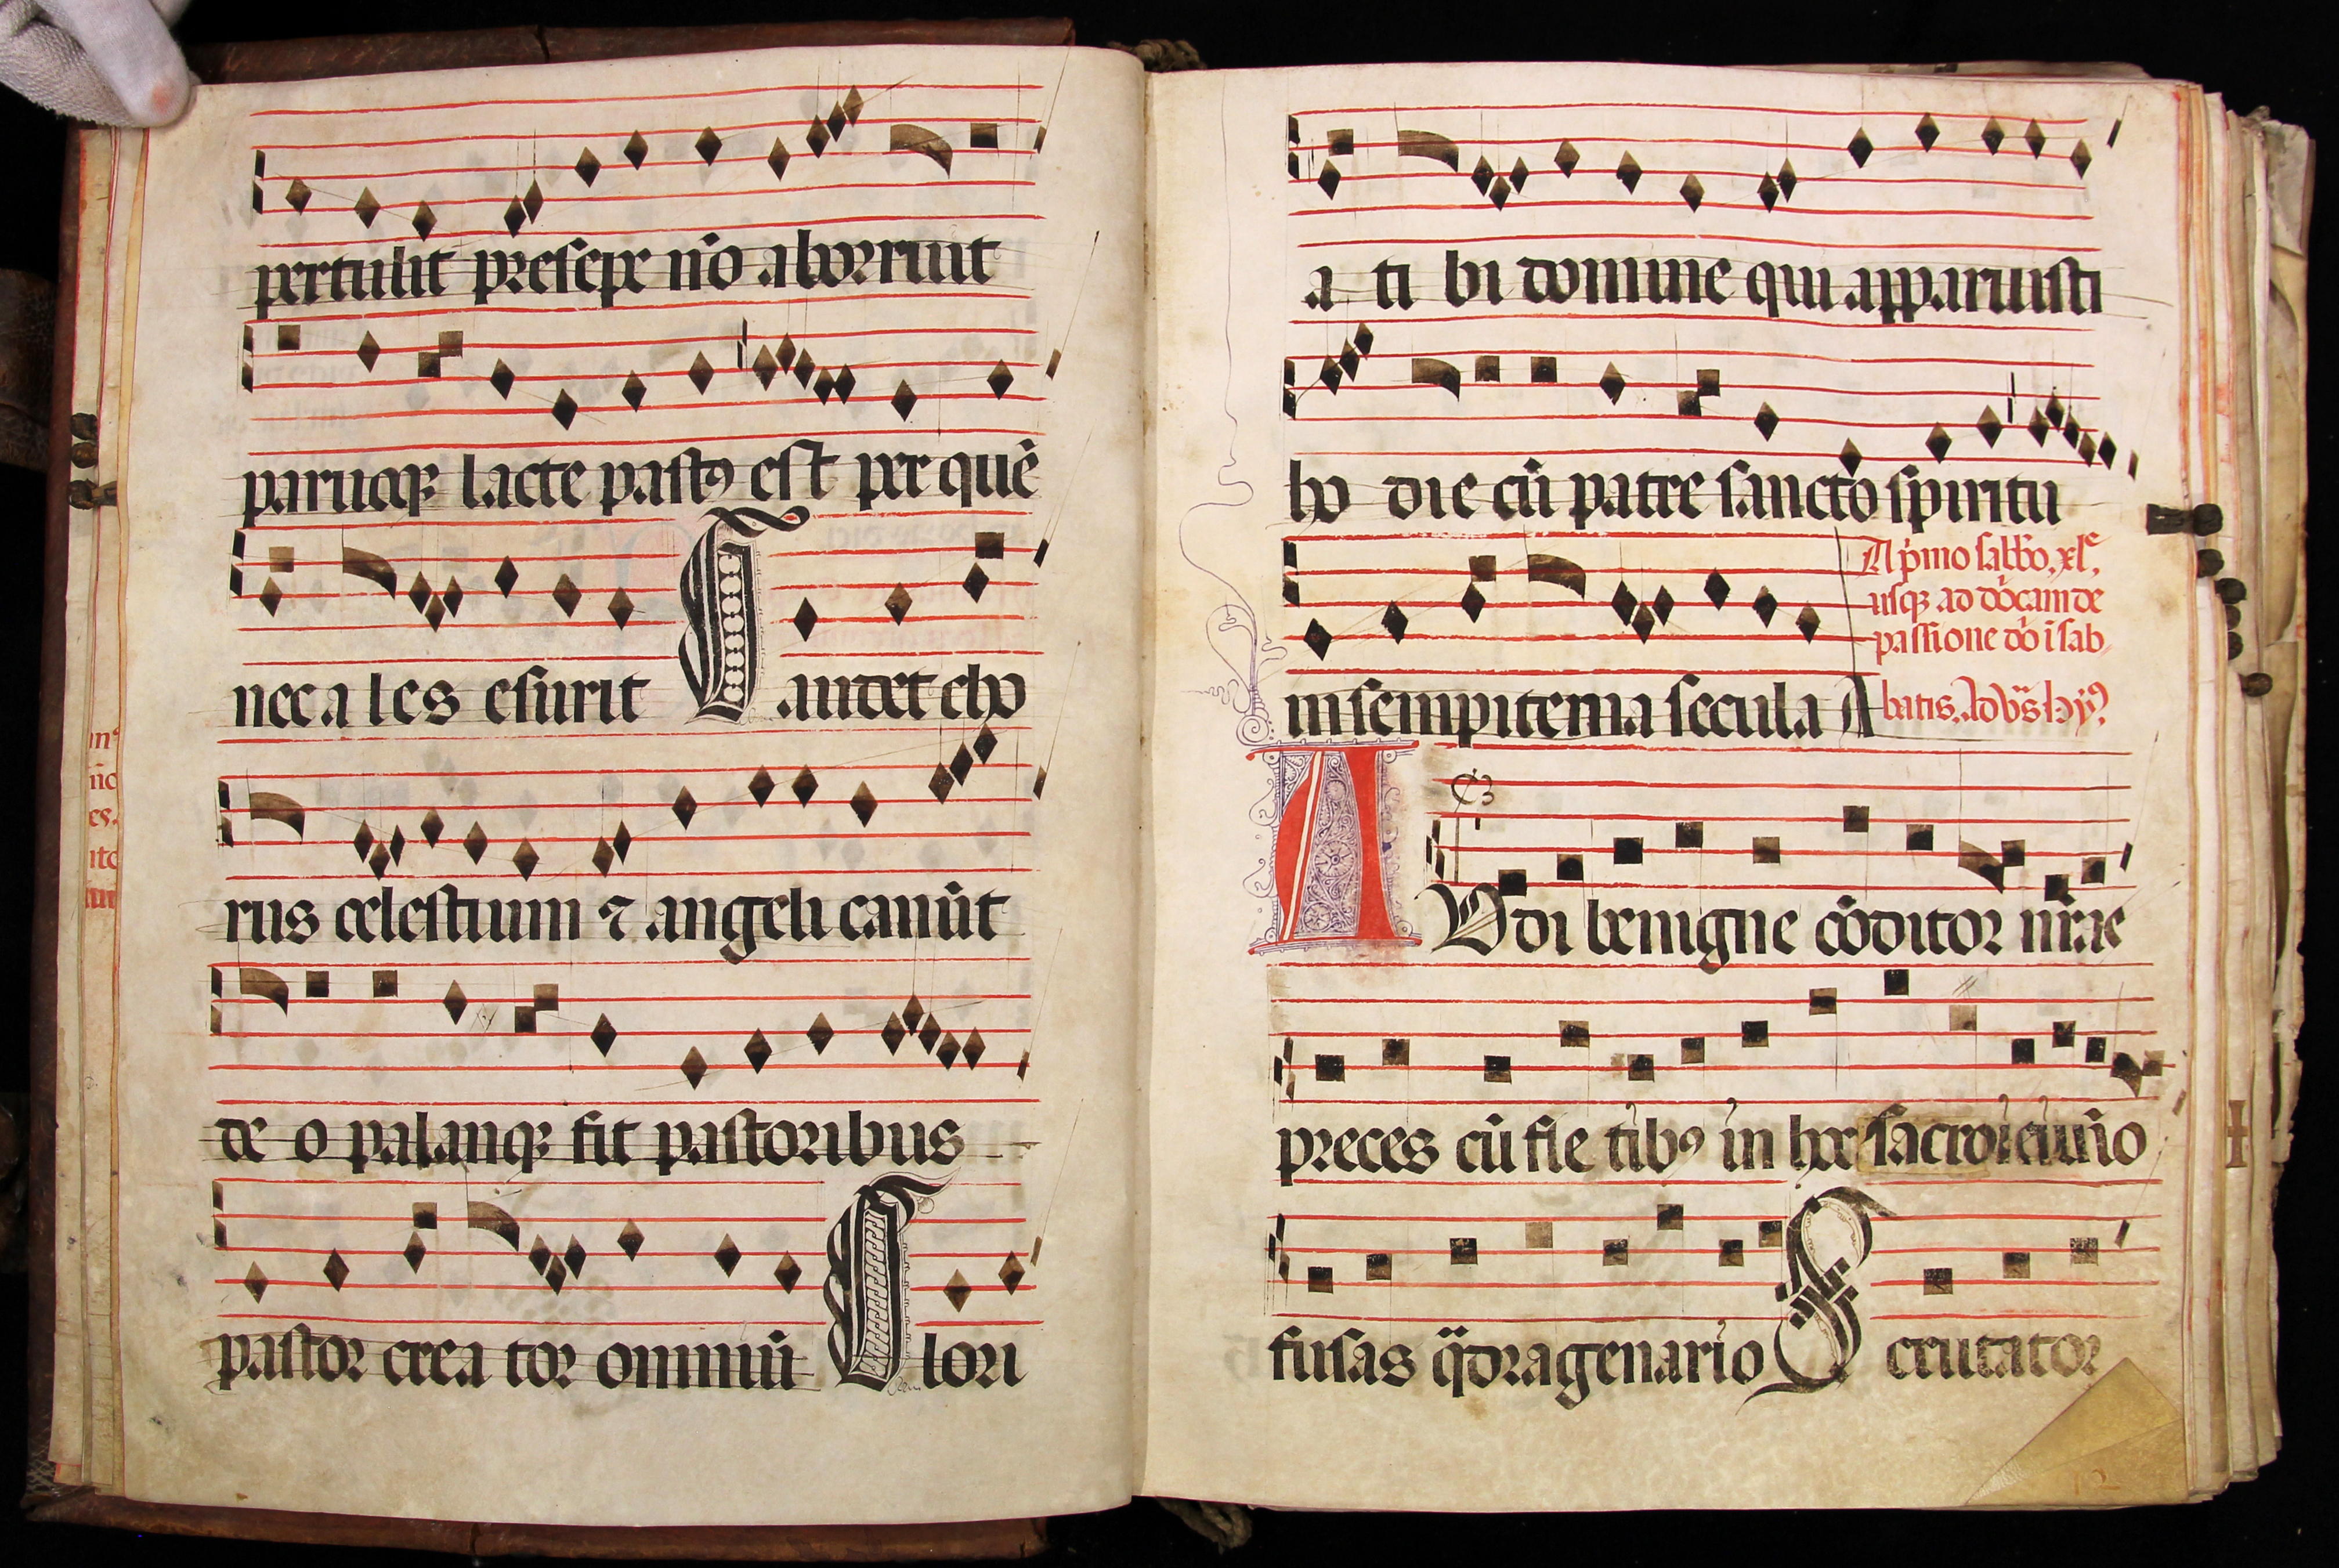 pertulit presepe nō aborruit
paruoqꝫ lacte pastꝰ est per quē
nec a les esurit Gaudet cho
rus celestium ⁊ angeli canūt
de o palamqꝫ fit pastoribus
pastor crea tor omniū Glori
a ti bi domine qui apparuisti
ho die cū patre sancto spiritu
in sempiterna secula A
A pͥmo sabbo. xlᵉ.
usqꝫ ad
passione dō ī sab
batis.
Audi benigne cōditor nr̄ae
preces cū fle tibꝰ in hoc sacro ieiunio
fusas qͣdragenario Scrutator